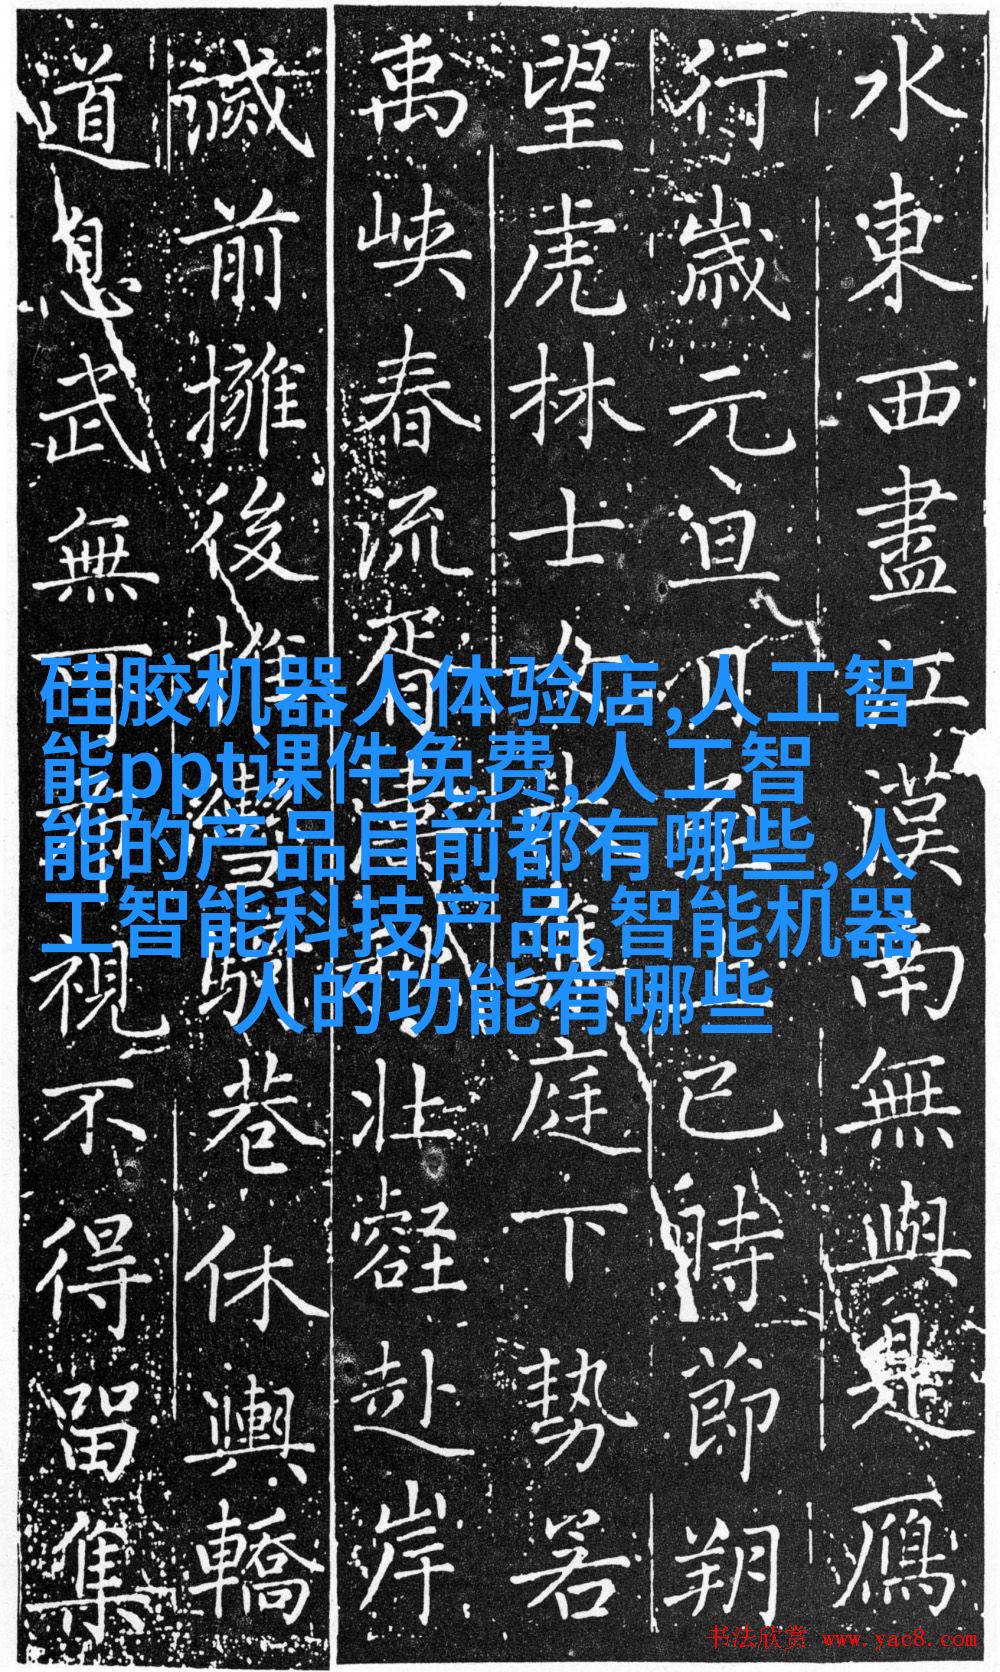 水東西盡江漢南無與是鴈
行歲元旦上巳時節朔
望虎林士女大集庭下勢若
禹峽春流胥濤秋壯壑赴岸
前擁後推騎巷休輿轎
道息武無可視不得留集
硅胶机器人体验店,人工智
能ppt课件免费,人工智
能的产品目前都有哪些,人
工智能科技产品,智能机器
人的功能有哪些
书法欣赏 www.yac8.com